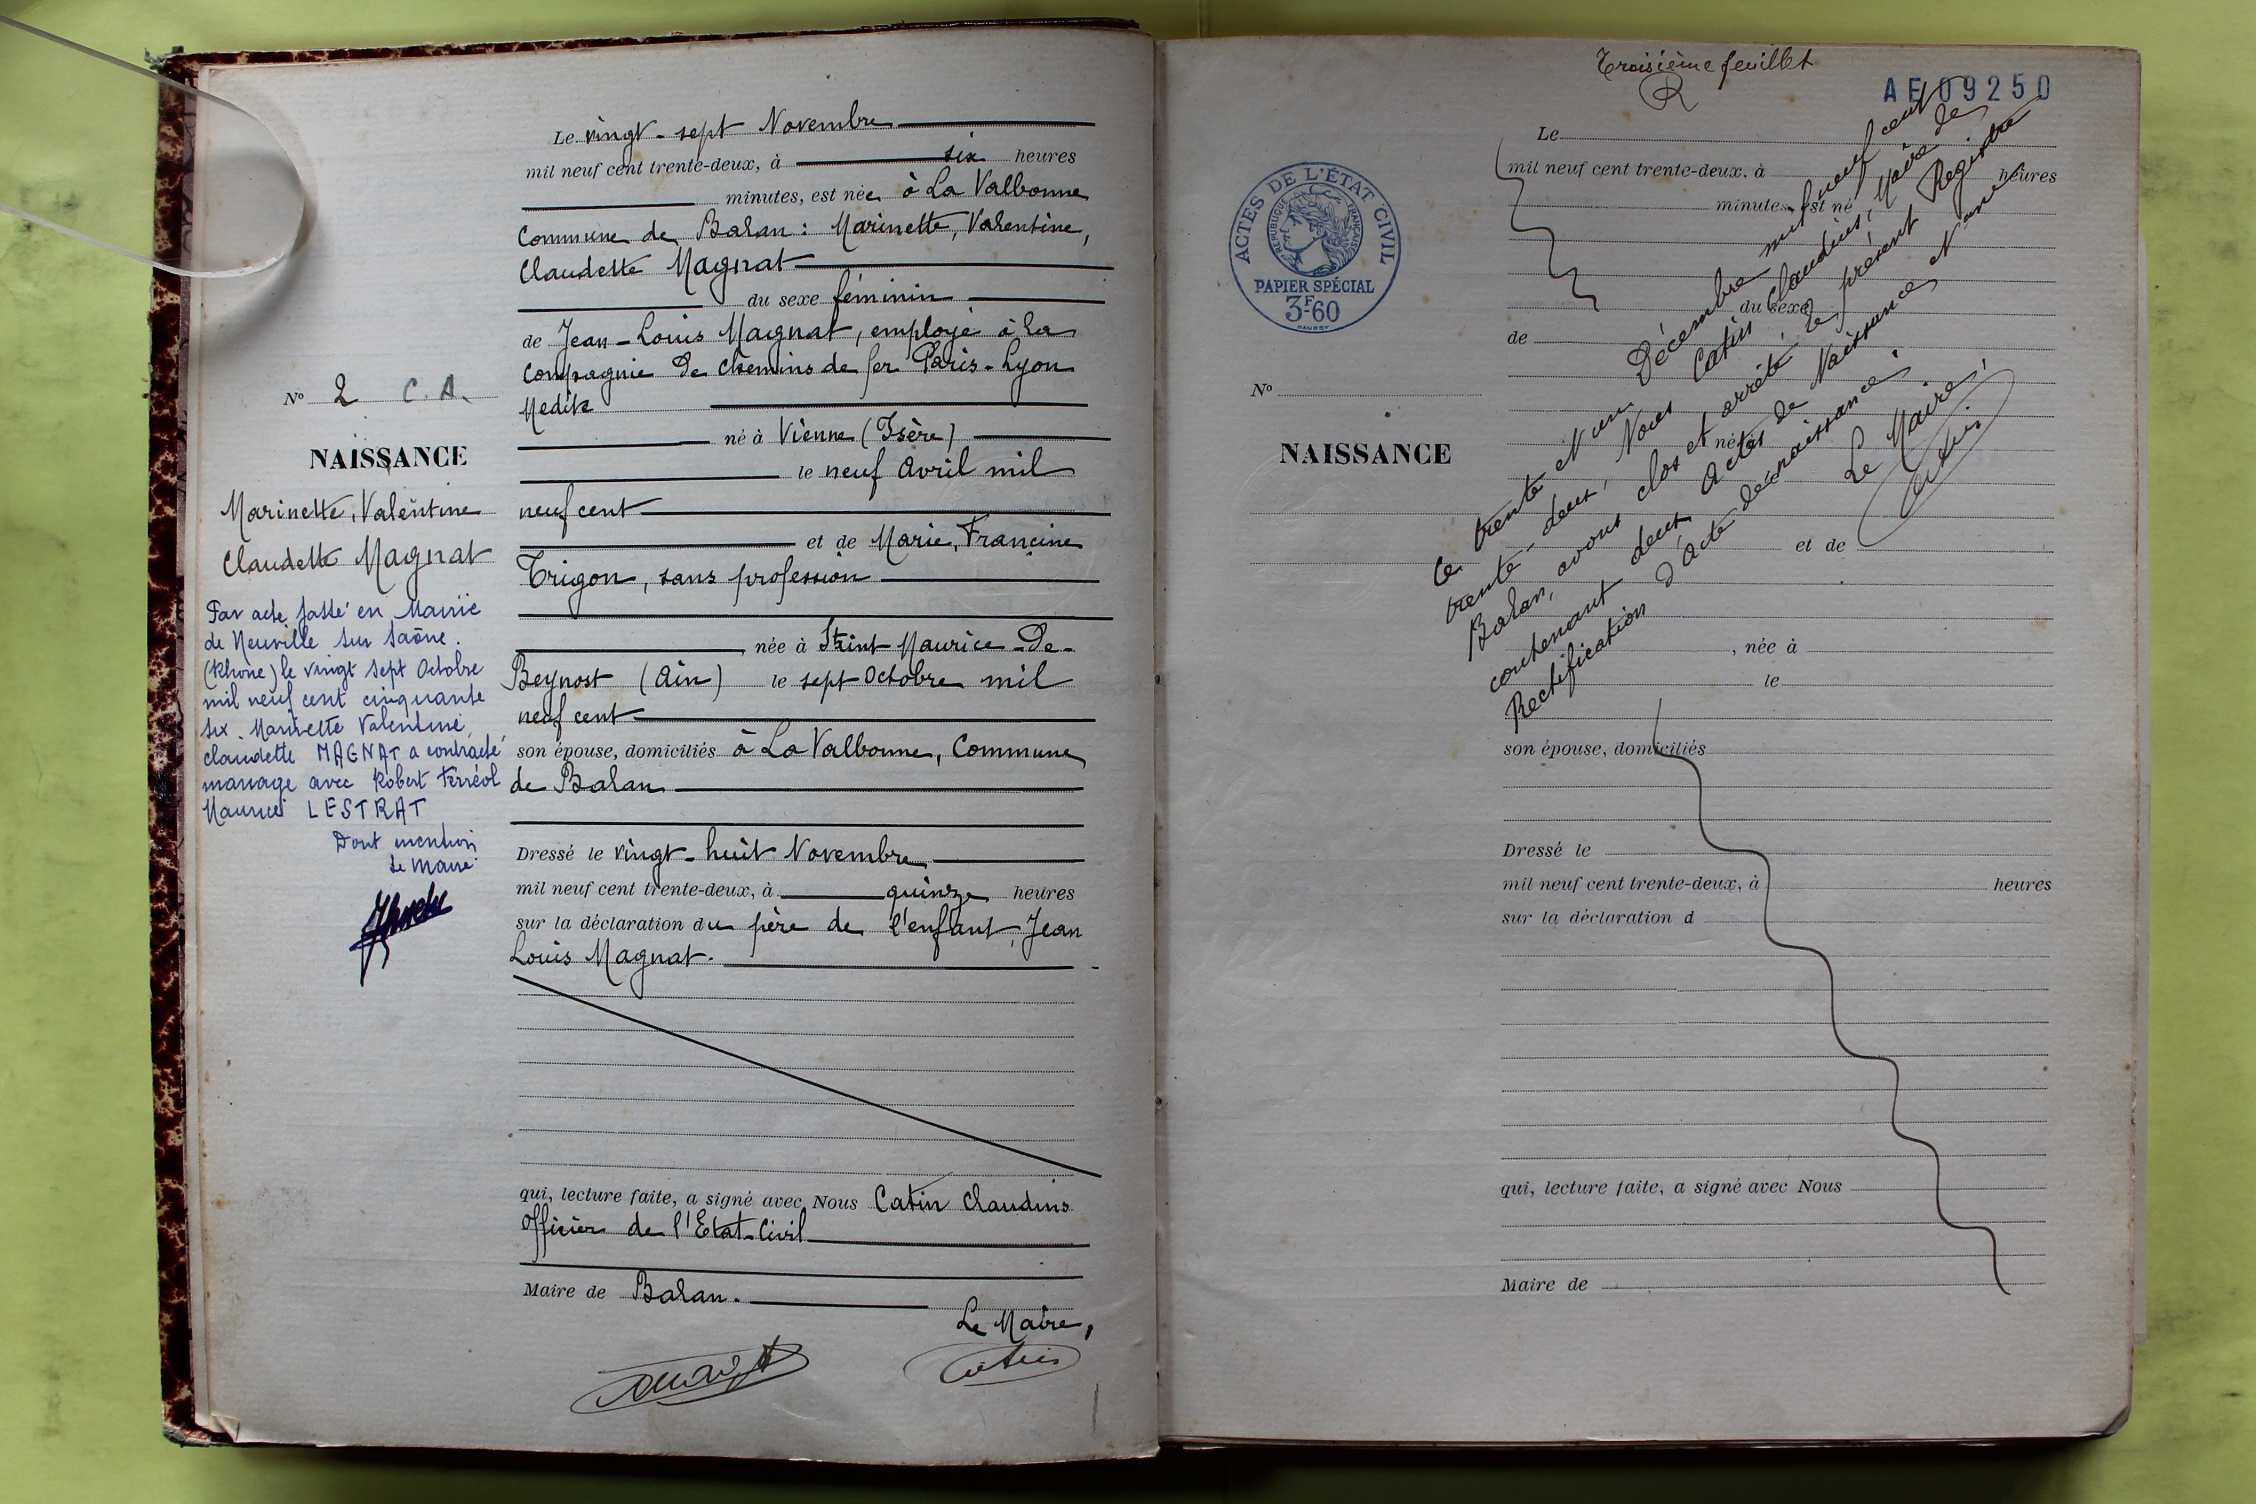 Le vingt-sept Novembre
mil neuf cent trente-deux, à six heures
minutes, est née à La Valbonne
Commune de Balan : Marinette, Valentine,
Claudette Magnat
du sexe féminin
de Jean-Louis Magnat, employé à la
Compagnie de chemins de fer Paris-Lyon
Medite
né à Vienne (Isère)
le neuf avril mil
neuf cent
et de Marie, Francine
Trigon, sans profession
née à Saint-Maurice-de-
Beynost (Ain) le sept Octobre mil
neuf cent
son épouse, domiciliés à La Valbonne, Commune
de Balan
Dressé le vingt-huit Novembre
mil neuf cent trente-deux, à quinze heures
sur la déclaration du père de l'enfant, Jean
Louis Magnat.
qui, lecture faite, a signé avec Nous Catin Claudius
Officier de l'Etat-Civil
Maire de Balan.
Le Maire,
Magnat
Catin
N° 2 C. A.
NAISSANCE
Marinette, Valentine
Claudette Magnat
Par acte passé en Mairie
de Neuville sur Saône.
(Rhône) le vingt sept Octobre
mil neuf cent cinquante
six. Marinette Valentine,
claudette MAGNAT a contracté
mariage avec Robert Ferréol
Maurice LESTRAT
Dont mention
Le Maire
Troisième feuillet
R
AE 09250
ACTES DE L'ÉTAT CIVIL
RÉPUBLIQUE FRANÇAISE
PAPIER SPÉCIAL
3F-60
N°
NAISSANCE
Le
mil neuf cent trente-deux, à heures
minutes, est né
du sexe
de
né à
le
et de
, née à
le
son épouse, domiciliés
Dressé le
mil neuf cent trente-deux, à heures
sur la déclaration d
qui, lecture faite, a signé avec Nous
Maire de
Ce trente et un Décembre mil neuf cent
trente-deux, Nous Catin Claudius, Maire de
Balan, avons clos et arrêté le présent Registre
contenant deux Actes de Naissance et une
Rectification d'acte de naissance.
Le Maire,
Catin